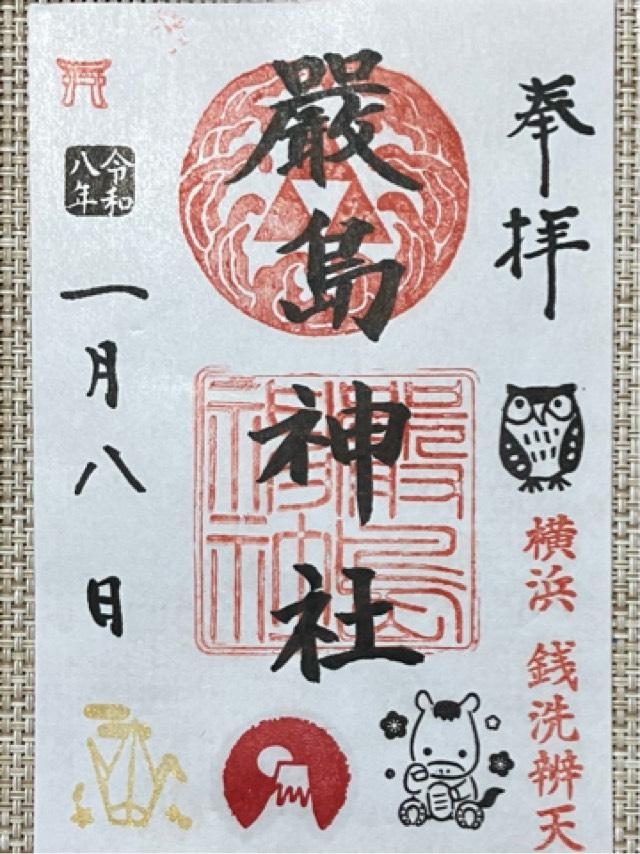 奉拝
横浜 銭洗辨天
嚴島神社
嚴島
神社
令和
八年
一月八日